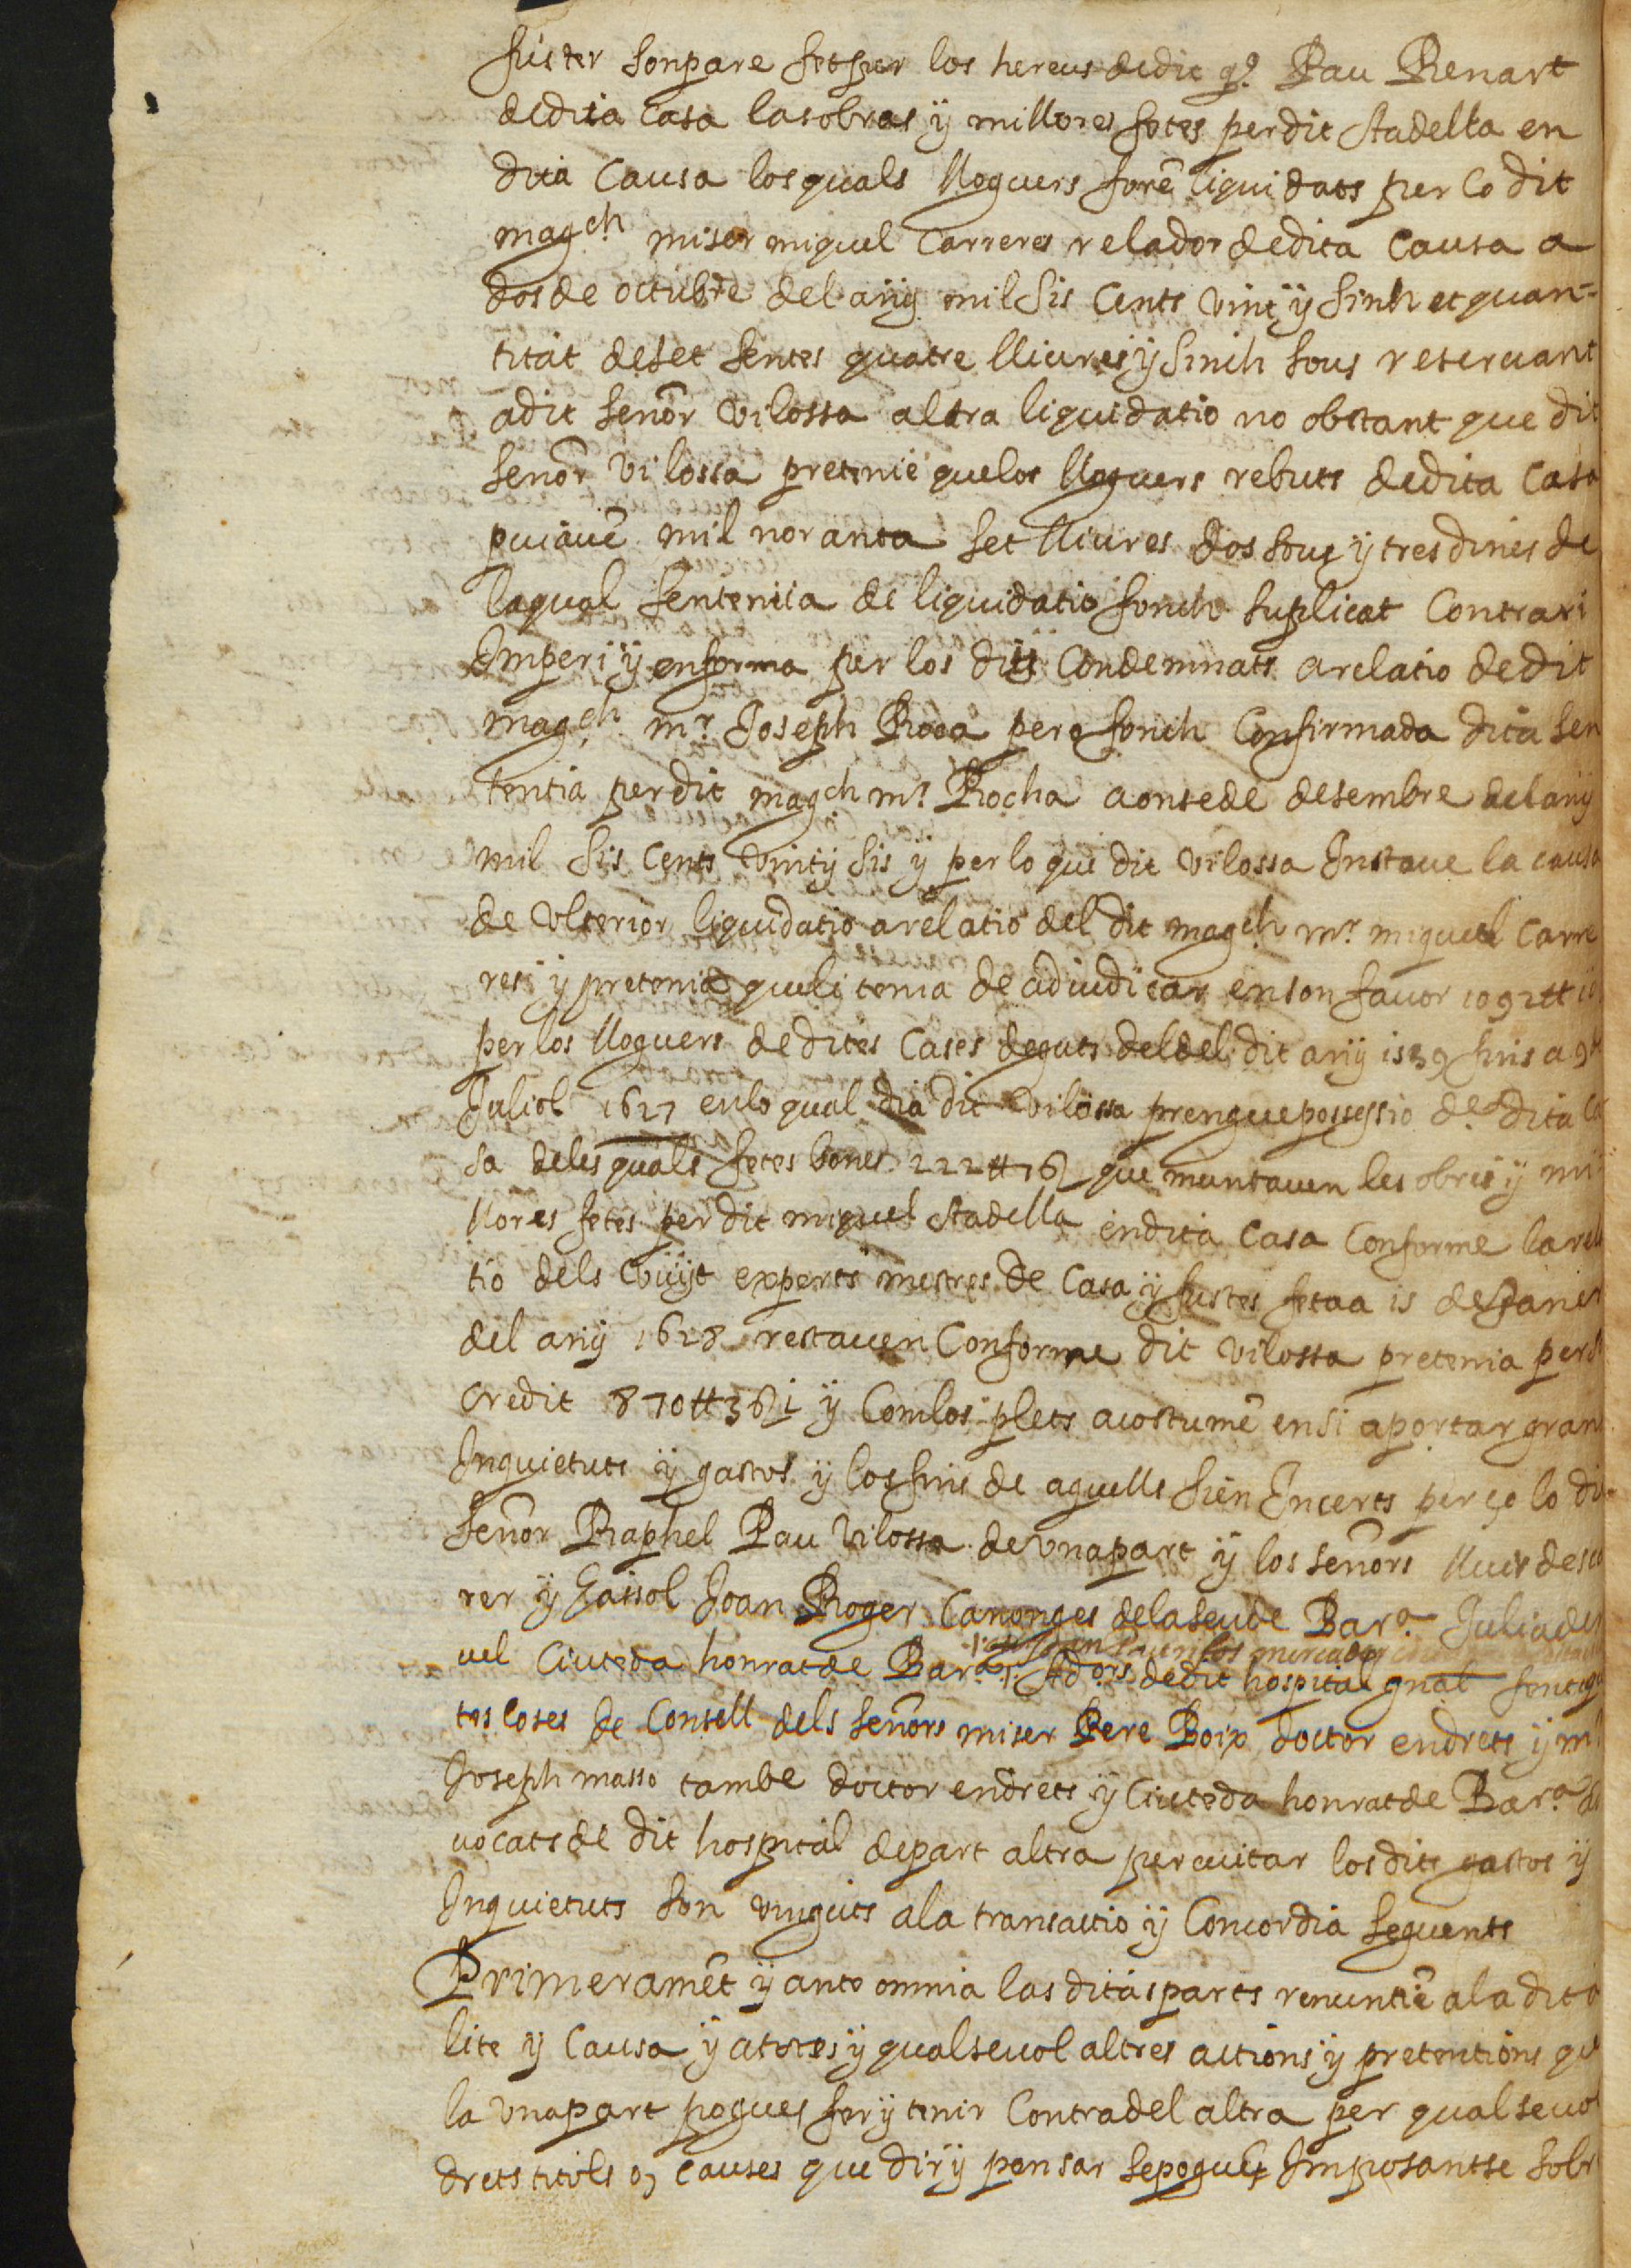 fuster son pare fet per los hereus de dit qº. Pau Renart
de dita casa las obras ÿ millores fetes per dit stadella en
dita Causa los quals lloguers forē liquidats per lo dit
magch miser miquel Carreres relador de dita Causa a
dos de octubre del anÿ mil sis Cents vint ÿ sinch et quan-
titat de set sentes quatre lliures ÿ sinch sous reservant
a dit señor vilossa altra liquidatio no obstant que dit
señor vilossa pretenie que los lloguers rebuts de dita Casa
puiavē mil noranta set lliures dos sous ÿ tres dines de
la qual sentencia de liquidatio fonch suplicat Contrari
Imperi ÿ en forma per los dits Condemnats a relatio de dit
magch mr. Joseph Roca pero fonch Confirmada dita sen
tentia per dit magch mr. Rocha a onse de desembre del anÿ
mil sis Cents vint ÿ sis ÿ per lo que dit vilossa Instave la causa
de ulterior liquidatio a relatio del dit magch mr. miquel Carre
res ÿ pretenia que li tenia de adiudicar en son favor 1092 ₶
per los lloguers de dites Cases deguts del del dit anÿ 1539 fins a 9
Juliol 1627 en lo qual dia dit vilossa prengue possessio de dita Ca
sa deles quals fetes bones 222 ₶ 16 que muntaven les obres ÿ mi
llores fetes per dit miquel stadella en dita Casa Conforme la rela
tio dels experts mestres de Casa ÿ fustes feta a 15 de Janer
del anÿ 1628 restaven Conforme dit vilossa pretenia per
credit 870 ₶ ÿ Com los plets acostumē en si aportar gran
Inquietuts ÿ gastos ÿ los fins de aquells sien Incerts per ço lo dit
señor Raphel Pau Vilossa de una part ÿ los señors lluis desco
rer ÿ Joan Roger Canonges de la seu de Bara. Julia de
vel Ciuteda honrat de Bara. Adors. de dit hospital gnal
tes coses de Consell dels señors miser Pere Boix doctor en drets ÿ mr
Joseph masso tambe doctor en drets ÿ Ciuteda honrat de Bara. Ad
vocats de dit hospital de part altra per evitar los dits gastos ÿ
Inquietuts son vinguts a la transactio ÿ Concordia seguents
Primeramēt ÿ ante omnia las ditas parts renuntiē a la dita
lite ÿ Causa ÿ a totes ÿ qualsevol altres actions ÿ pretentions que
la una part pogues fer ÿ tenir Contra del altra per qualsevol
drets titols o, causes que dir ÿ pensar se pogues Imposantse sobr